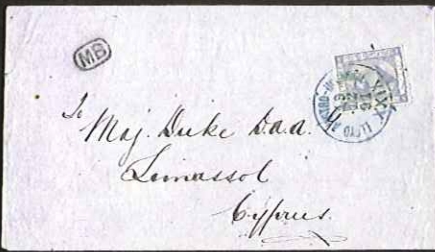 MB
To
Maj. Duke D.a.a.
Limassol
Cyprus.